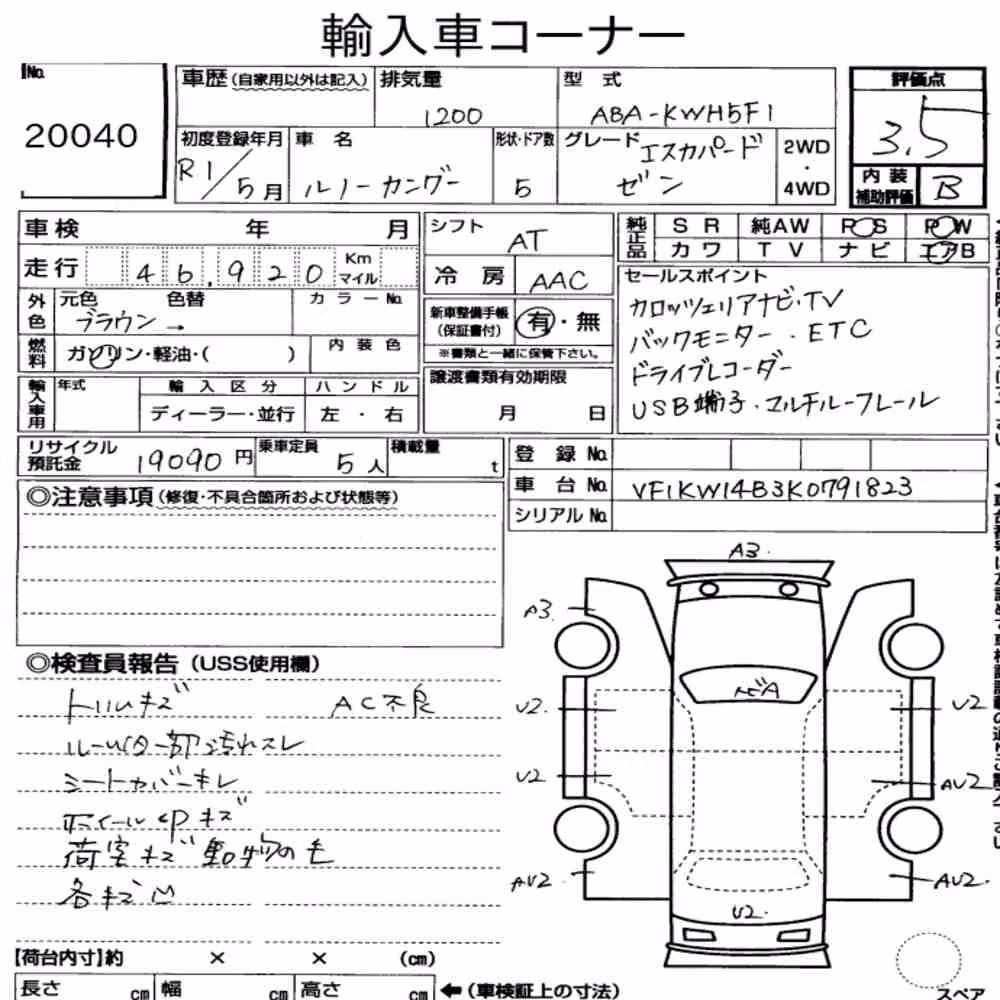 輸入車コーナー
No.
20040
車歴(自家用以外は記入)
排気量
1200
型 式
ABA-KWH5F1
評価点
3.5
初度登録年月
R1/5月
車 名
ルノー カングー
形状・ドア数
5
グレード
エスカパード
ゼン
2WD
・
4WD
内 装
補助評価
B
車検 年 月
走行 46,920 Km マイル
シフト
AT
冷 房
AAC
純正品
SR 純AW PS PW
カワ TV ナビ エアB
外色
元色 色替
ブラウン→
カラーNo.
燃料
ガソリン・軽油・( )
内 装 色
新車整備手帳
(保証書付)
有・無
※書類と一緒に保管下さい。
セールスポイント
カロッツェリアナビ・TV
バックモニター・ETC
ドライブレコーダー
USB端子・マルチルーフレール
輸入車用
年式
輸 入 区 分
ディーラー・並行
ハ ン ド ル
左 ・ 右
譲渡書類有効期限
月 日
リサイクル
預託金
19090円
乗車定員
5人
積載量
t
登 録 No.
車 台 No. VF1KW14B3K0791823
シリアル No.
◎注意事項(修復・不具合箇所および状態等)
◎検査員報告(USS使用欄)
トリムキズ AC不良
ルーム内一部汚れスレ
シートカバーキレ
ホイールcpキズ
荷室キズ 動物の毛
各キズ凹
A3.
A3
トビA
U2.
U2
AV2
U2
AU2
AU2.
U2.
【荷台内寸】約 × × (cm)
長さ cm 幅 cm 高さ cm
←(車検証上の寸法)
スペア